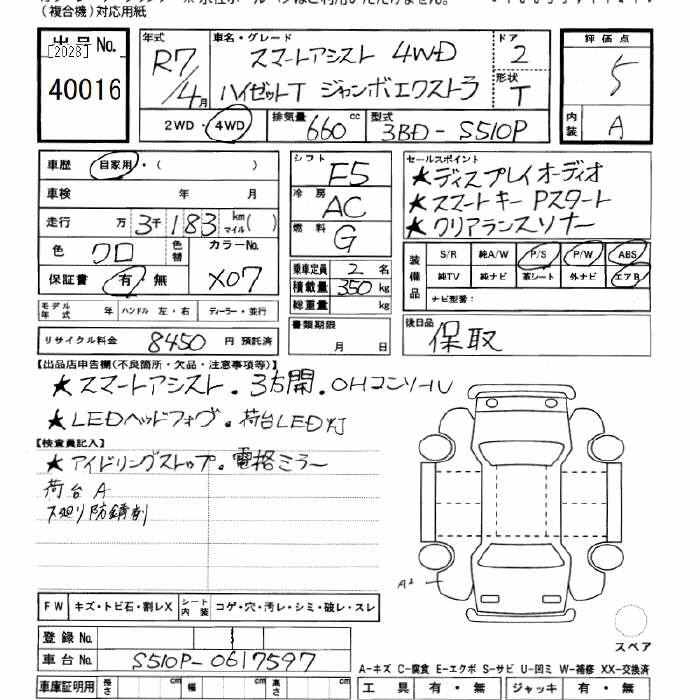 (複合機)対応用紙
出品No.
[2028]
40016
年式
R7/4月
車名・グレード
スマートアシスト 4WD
ハイゼットT ジャンボエクストラ
ドア
2
形状
T
評価点
5
内装
A
2WD・4WD
排気量 660 cc
型式 3BD-S510P
車歴 自家用・( )
車検 年 月
走行 万 3千 183 km マイル( )
色 クロ 色替 カラーNo. X07
保証書 有・無
モデル年式 年 ハンドル 左・右 ディーラー・並行
リサイクル料金 8450 円 預託済
シフト F5
冷房 AC
燃料 G
乗車定員 2 名
積載量 350 kg
総重量 kg
書類期限 月 日
セールスポイント
★ディスプレイオーディオ
★スマートキー Pスタート
★クリアランスソナー
装備品
S/R 純A/W P/S P/W ABS
純TV 純ナビ 革シート 外ナビ エアB
ナビ型番:
後日品
保取
【出品店申告欄(不良箇所・欠品・注意事項等)】
★スマートアシスト・3方開・OHコンソール
★LEDヘッドフォグ・荷台LED灯
【検査員記入】
★アイドリングストップ・電格ミラー
荷台A
下廻り防錆剤
A2
FW キズ・トビ石・割レX シート内装 コゲ・穴・汚レ・シミ・破レ・スレ
スペア
登録No.
車台No. S510P-0617597
A-キズ C-腐食 E-エクボ S-サビ U-凹ミ W-補修 XX-交換済
車庫証明用 長さ cm 幅 cm 高さ cm
工具 有・無 ジャッキ 有・無